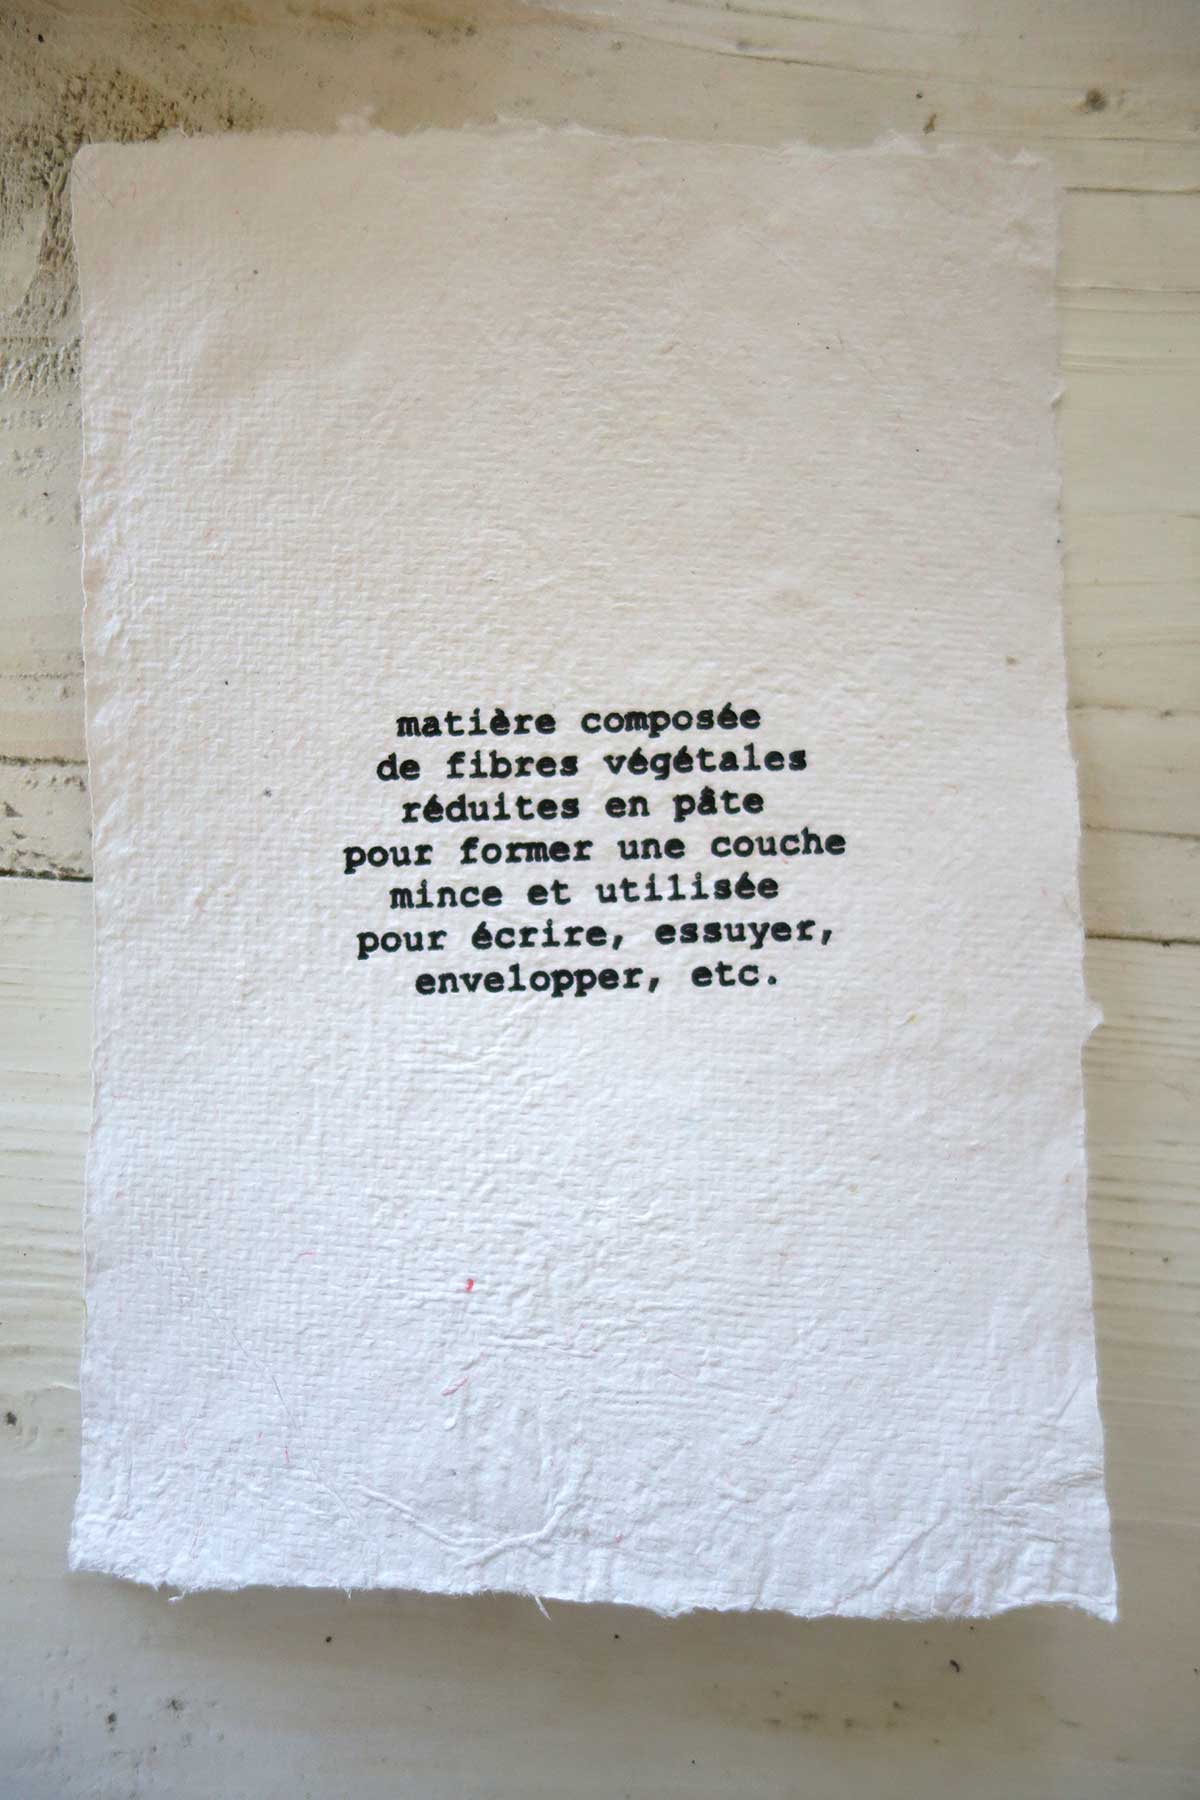 matière composée
de fibres végétales
réduites en pâte
pour former une couche
mince et utilisée
pour écrire, essuyer,
envelopper, etc.